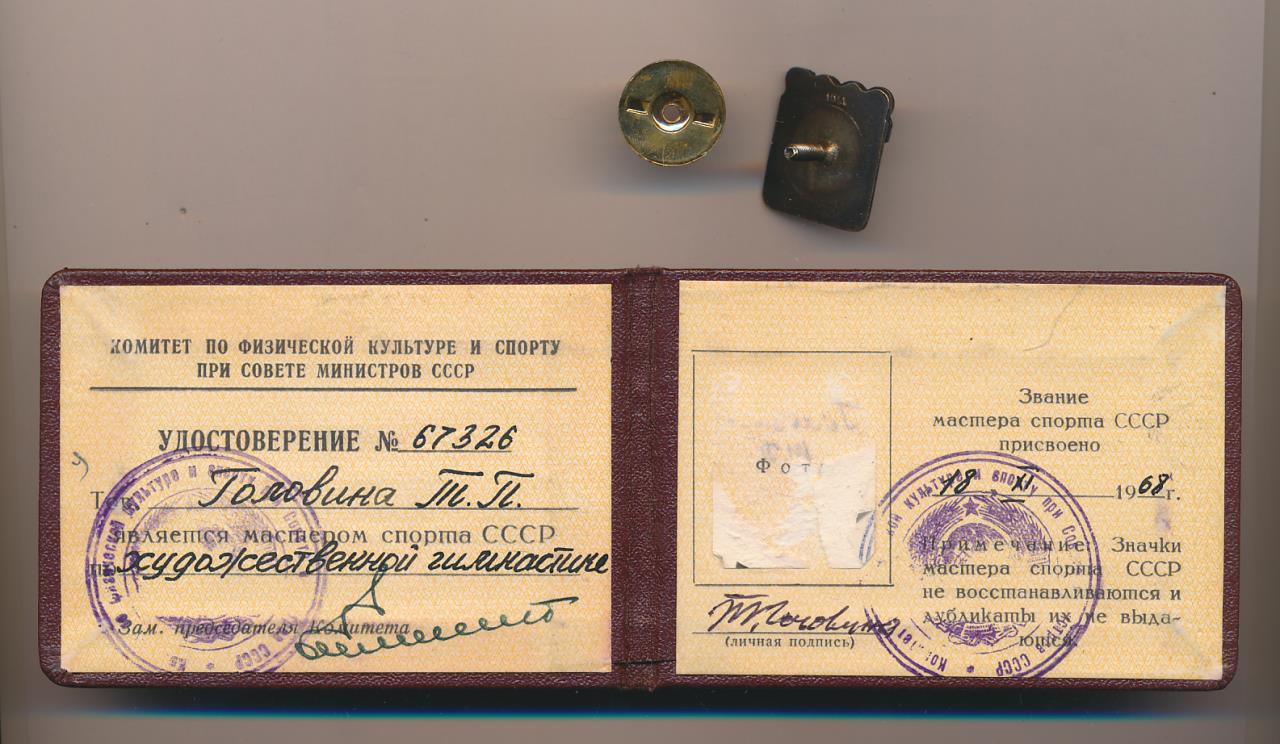 КОМИТЕТ ПО ФИЗИЧЕСКОЙ КУЛЬТУРЕ И СПОРТУ
ПРИ СОВЕТЕ МИНИСТРОВ СССР
УДОСТОВЕРЕНИЕ № 67326
Головина Т.П.
является мастером спорта СССР
художественной гимнастике
Зам. председателя Комитета
Фот
Т.Головина
(личная подпись)
Звание
мастера спорта СССР
присвоено
18 XI 1968 г.
Примечание: Значки
мастера спорта СССР
не восстанавливаются и
дубликаты их не выда-
ются.